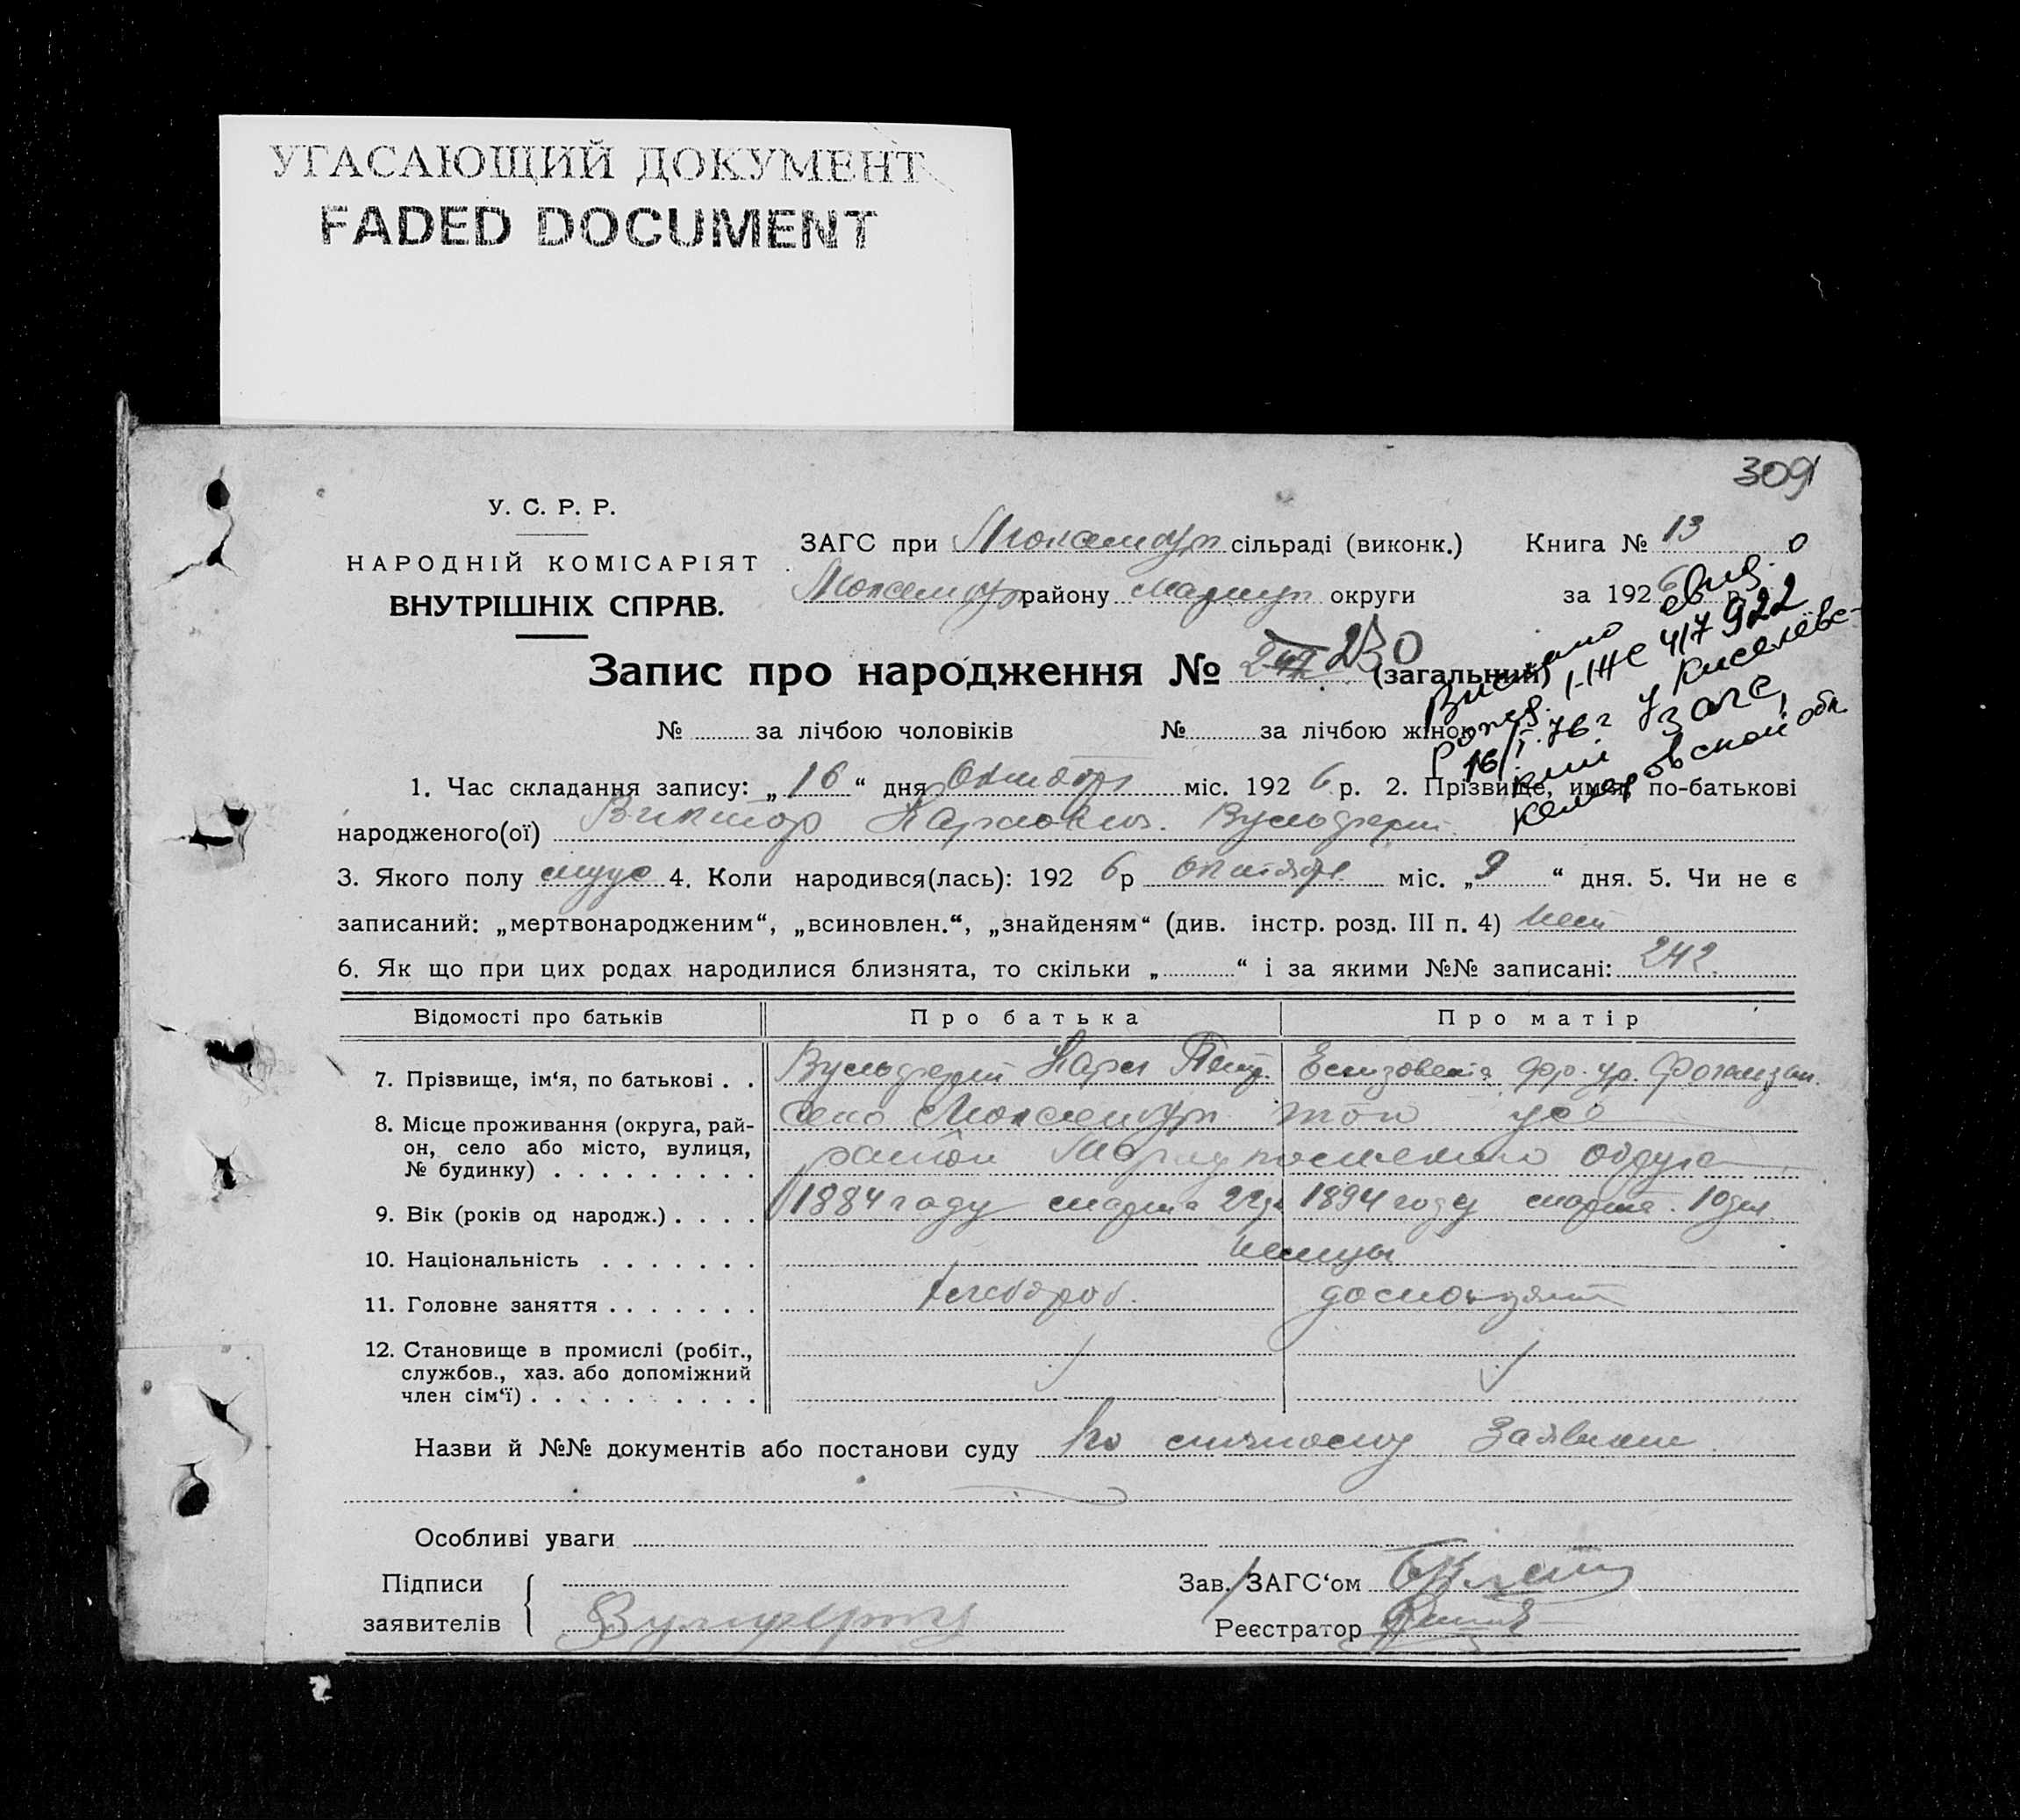 УГАСАЮЩИЙ ДОКУМЕНТ
FADED DOCUMENT
309
У. С. Р. Р.
НАРОДНІЙ КОМІСАРІЯТ
ВНУТРІШНІХ СПРАВ.
ЗАГС при сільраді (виконк.) Книга № 13
району округи за 1926 р.
Запис про народження № 242 230 (загальний)
№ за лічбою чоловіків № за лічбою жінок
Виписано свид. о
рожд. 417922
16/I.76 г Киселевс-
кий ЗАГС,
Кемеровской обл.
1. Час складання запису: „ 16 “ дня Октября міс. 1926 р. 2. Прізвище, имя, по-батькові
народженого(ої) Виктор Карлович Вульферт
3. Якого полу муж 4. Коли народився(лась): 1926 р октября міс. „ 9 “ дня. 5. Чи не є
записаний: „мертвонародженим“, „всиновлен.“, „знайденям“ (див. інстр. розд. III п. 4) нет
6. Як що при цих родах народилися близнята, то скільки „ “ і за якими №№ записані: 242
Відомості про батьків Про батька Про матір
7. Прізвище, ім‘я, по батькові . . Вульферт Карл Петр.
8. Місце проживання (округа, рай- село
он, село або місто, вулиця, район
№ будинку) . . . . . . . . .
9. Вік (років од народж.) . . . . 1884 году марта 22 д. 1894 году марта 10 дня
10. Національність . . . . . . . немцы
11. Головне заняття . . . . . . . хлебороб. домохозяй
12. Становище в промислі (робіт.,
службов., хаз. або допоміжний
член сім‘ї) . . . . . . . . . .
Назви й №№ документів або постанови суду По личному заявлению
Особливі уваги
Підписи Зав. ЗАГС‘ом
заявителів Вульферт Реєстратор